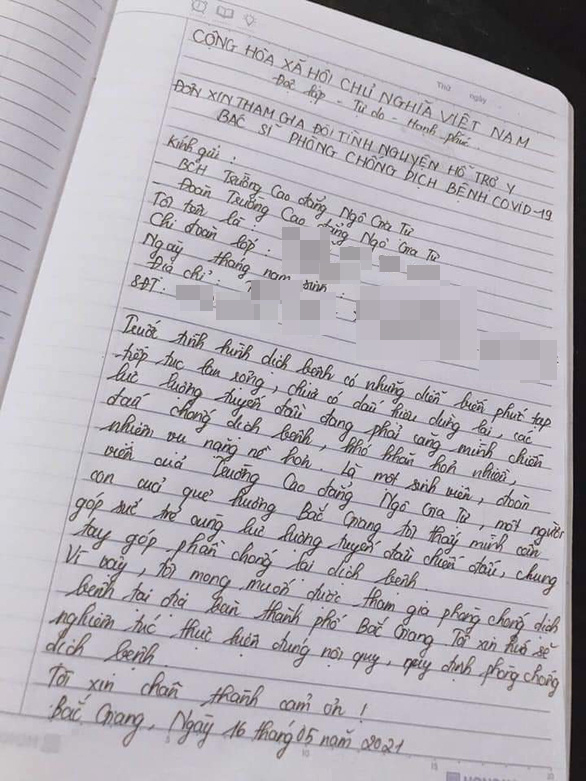 Thứ ngày
CỘNG HÒA XÃ HỘI CHỦ NGHĨA VIỆT NAM
Độc lập - Tự do - Hạnh phúc
ĐƠN XIN THAM GIA ĐỘI TÌNH NGUYỆN HỖ TRỢ Y
BÁC SĨ PHÒNG CHỐNG DỊCH BỆNH COVID-19
Kính gửi :
BCH Trường Cao đẳng Ngô Gia Tự
Đoàn Trường Cao đẳng Ngô Gia Tự
Tôi tên là :
Chi đoàn lớp :
Ngày tháng năm sinh :
Địa chỉ :
SĐT :
Trước tình hình dịch bệnh có những diễn biến phức tạp
tiếp tục lan rộng, chưa có dấu hiệu dừng lại, các
lực lượng tuyến đầu đang phải căng mình chiến
đấu chống dịch bệnh, khó khăn hơn nhiều,
nhiệm vụ nặng nề hơn. Là một sinh viên, đoàn
viên của Trường Cao đẳng Ngô Gia Tự, một người
con của quê hương Bắc Giang tôi thấy mình cần
góp sức trẻ cùng lực lượng tuyến đầu chiến đấu, chung
tay góp phần chống lại dịch bệnh.
Vì vậy, tôi mong muốn được tham gia phòng chống dịch
bệnh tại địa bàn thành phố Bắc Giang. Tôi xin hứa sẽ
nghiêm túc thực hiện đúng nội quy, quy định phòng chống
dịch bệnh.
Tôi xin chân thành cảm ơn !
Bắc Giang, Ngày 16 tháng 05 năm 2021